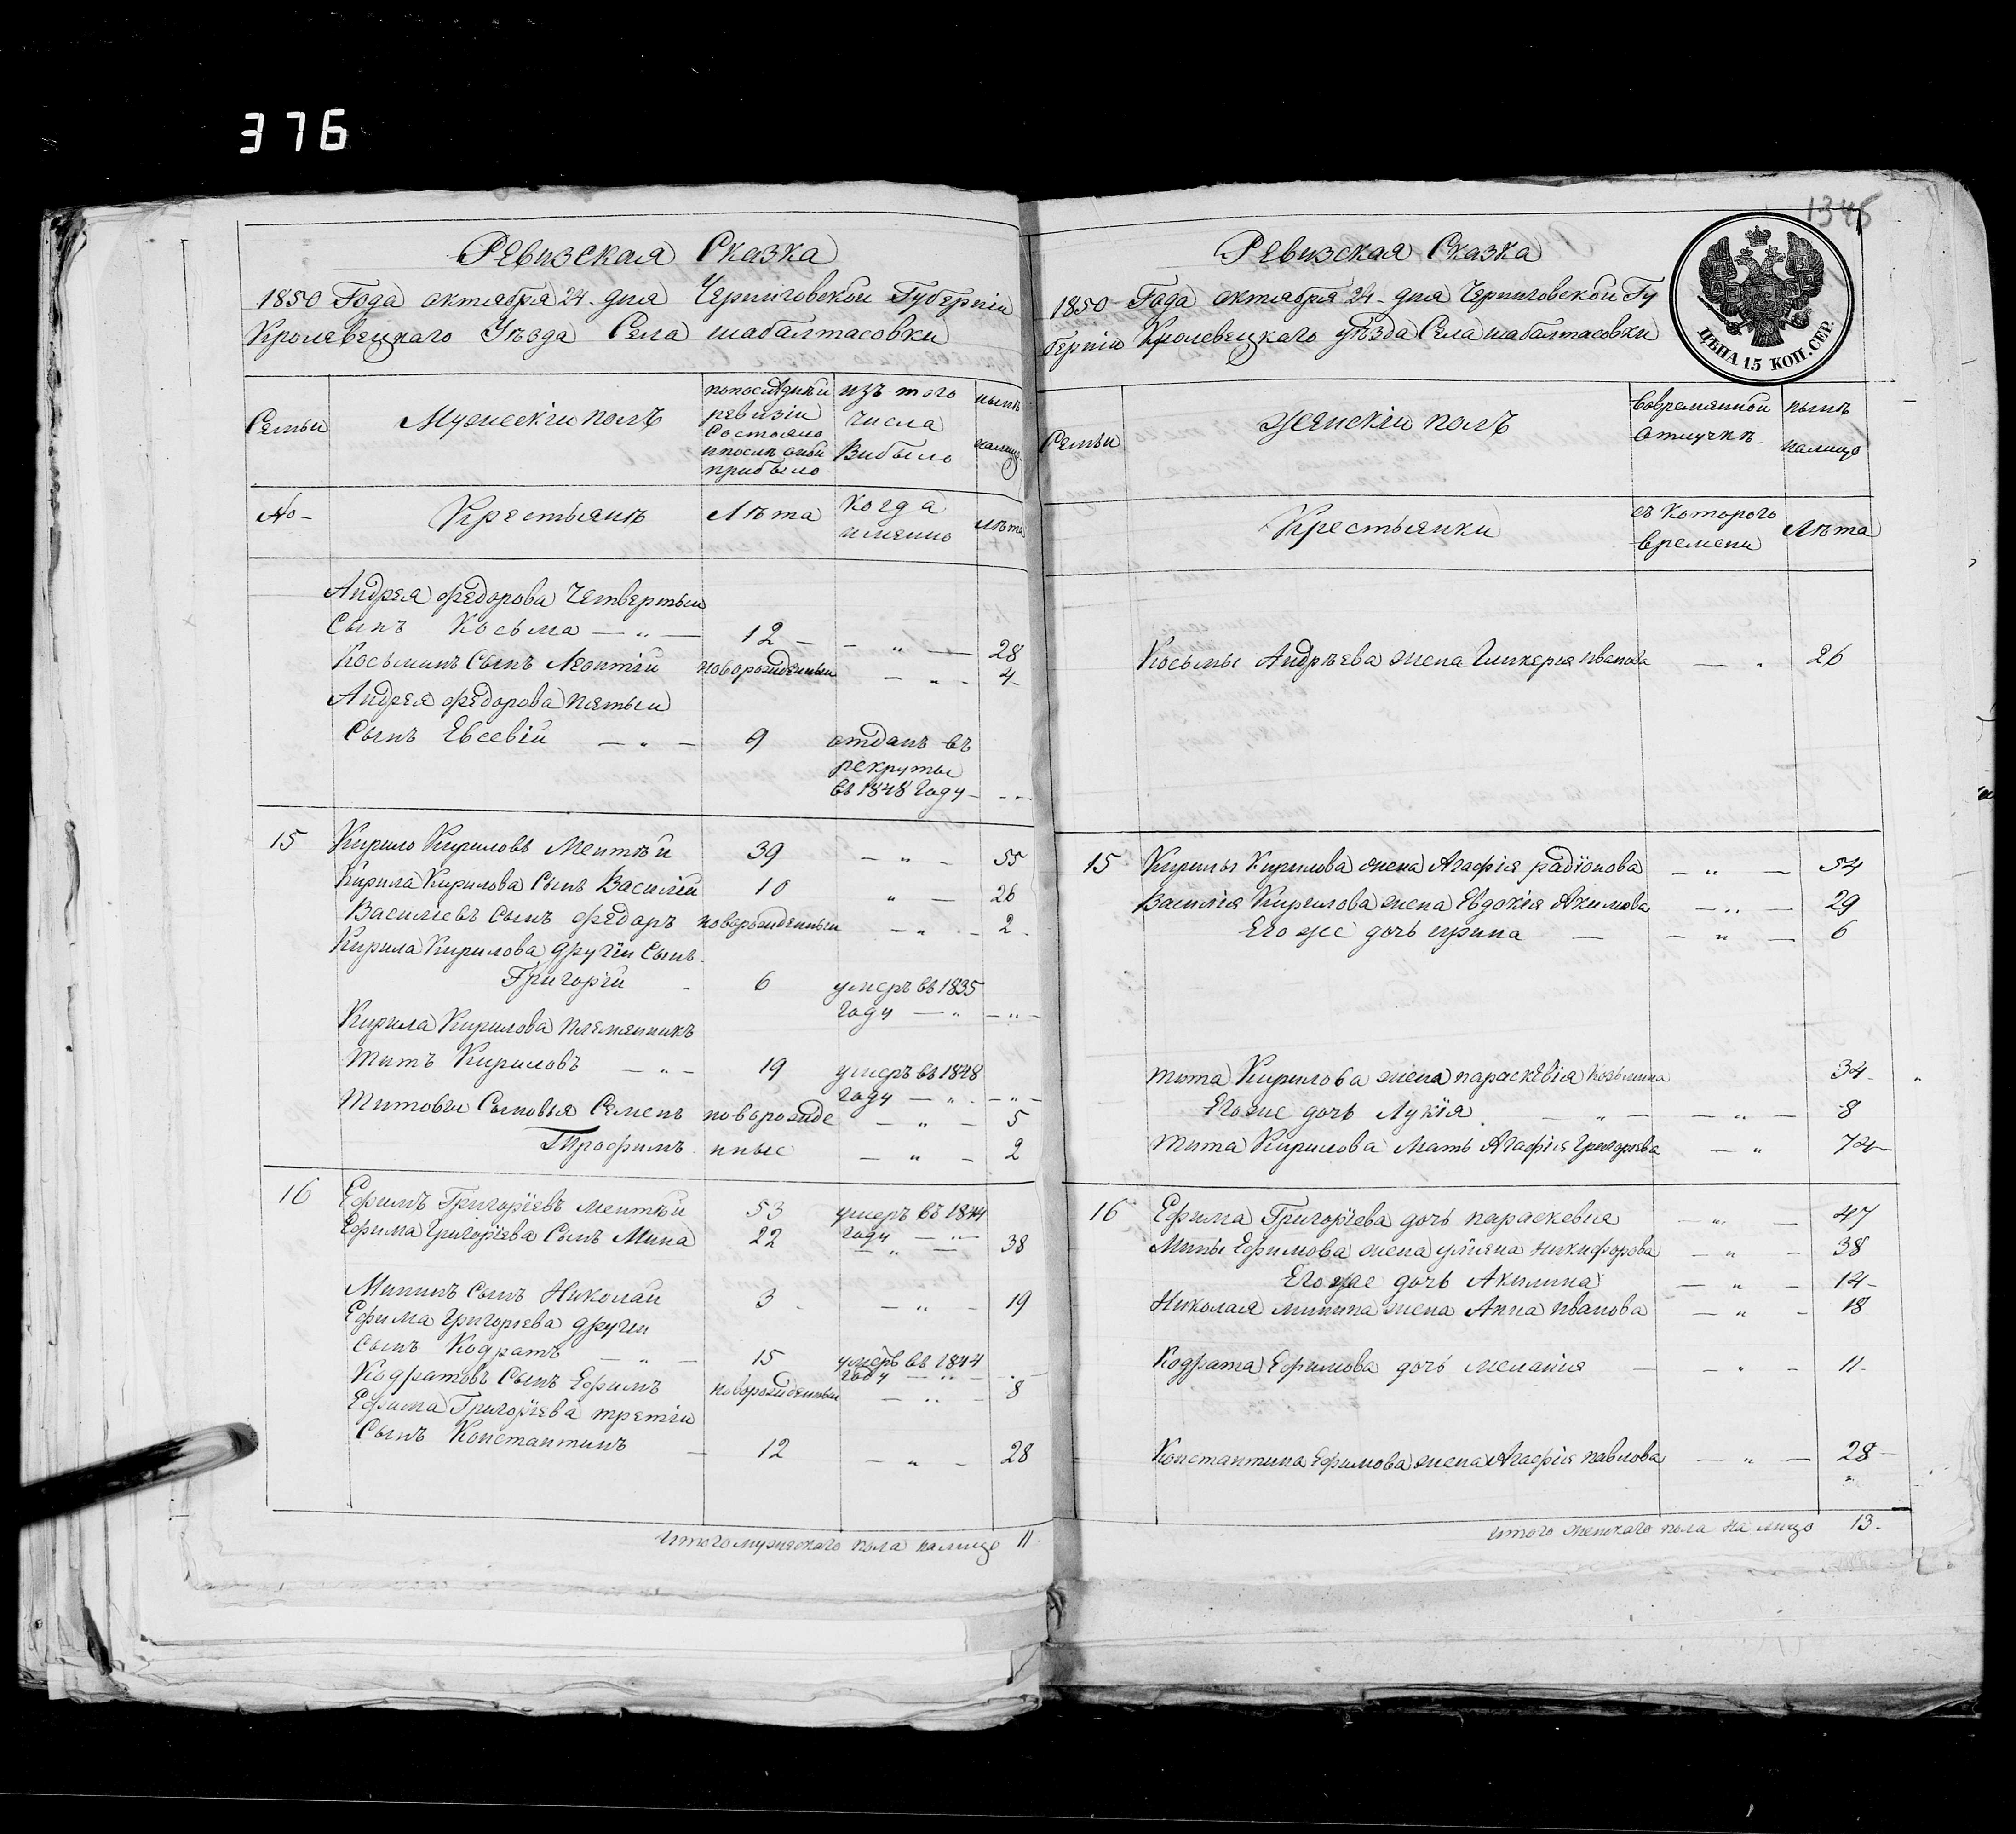 376
Ревизская Сказка
1850 Года октября 24 дня Черниговской Губерніи
Кролевецкаго Уѣзда Села шабалтасовки
Семьи
Мужескій полъ
по последнѣй ревизіи состояло и послѣ оной прибыло
изъ того числа выбыло
нынѣ налицо
№
Крестьянѣ
Лѣта
Когда именно
Лѣта
Андрея федорова Четвертый
Сынъ Косьма — „ — 12 — — „ — 28
Косьминъ Сынъ Леонтій новорожденный — „ - 4
Андрея федорова пятый
Сынъ Евсевій — „ — 9 отданъ въ
рекруты
въ 1848 Году — „ —
15 Кирило Кириловъ Ментѣй 39 — „ — 55
Кирила Кирилова Сынъ Василій 10 „ — 26
Василіевъ Сынъ федоръ новорожденный — „ - 2
Кирила Кирилова другій Сынъ
Григорій - 6 умеръ въ 1835
Году — „ — „ —
Кирила Кирилова племянникъ
Титъ Кириловъ — „ — 19 умеръ въ 1848
Году — „ — „ —
Титовы Сыновья Семенъ новорожде — „ — 5
Трофимъ нные — „ — 2
16 Ефимъ Григоріевъ Ментѣй 53 умеръ въ 1844
Году — „ —
Ефима Григоріева Сынъ Мина 22 — „ — 38
Мининъ Сынъ Николай 3 — „ — 19
Ефима Григорьева другій
Сынъ Кодратъ — „ — 15 умеръ въ 1844
Году — „ —
Кодратовъ Сынъ Ефимъ новорожденный — „ — 8
Ефима Григоріева третій
Сынъ Константинъ — 12 — „ — 28
итого мужескаго пола налицо 11
1345
Ревизская Сказка
1850 Года октября 24 дня Черниговской Гу
берніи Кролевецкаго уѣзда Села шабалтасовки
ЦѢНА 15 КОП. СЕР.
Семьи
Женскій полъ
Вовремянной отлучкѣ
нынѣ налицо
Крестьянки
съ которого времени
Лѣта
Косьмы Андрѣева жена Гликерія иванова — „ 26
15 Кирилы Кирилова жена Агафія радіонова — „ — 54
Василія Кирилова жена Евдокія Акимова — „ — 29
Его же дочь ирина — — „ — 6
тита Кирилова жена параскѣвія Козьмина 34
Егоже дочь Лукія — „ — 8
тита Кирилова Мать Агафія Григорьева — „ 74
16 Ефима Григоріева дочь параскевия — „ — 47
Мины Ефимова жена уліяна никифорова — „ — 38
Его же дочь Акилина — „ — 14
Николая минина жена Анна иванова — „ — 18
Кодрата Ефимова дочь мелания — — „ — 11
Константина Ефимова жена Агафія павлова — „ — 28
итого женскаго пола на лицо 13.